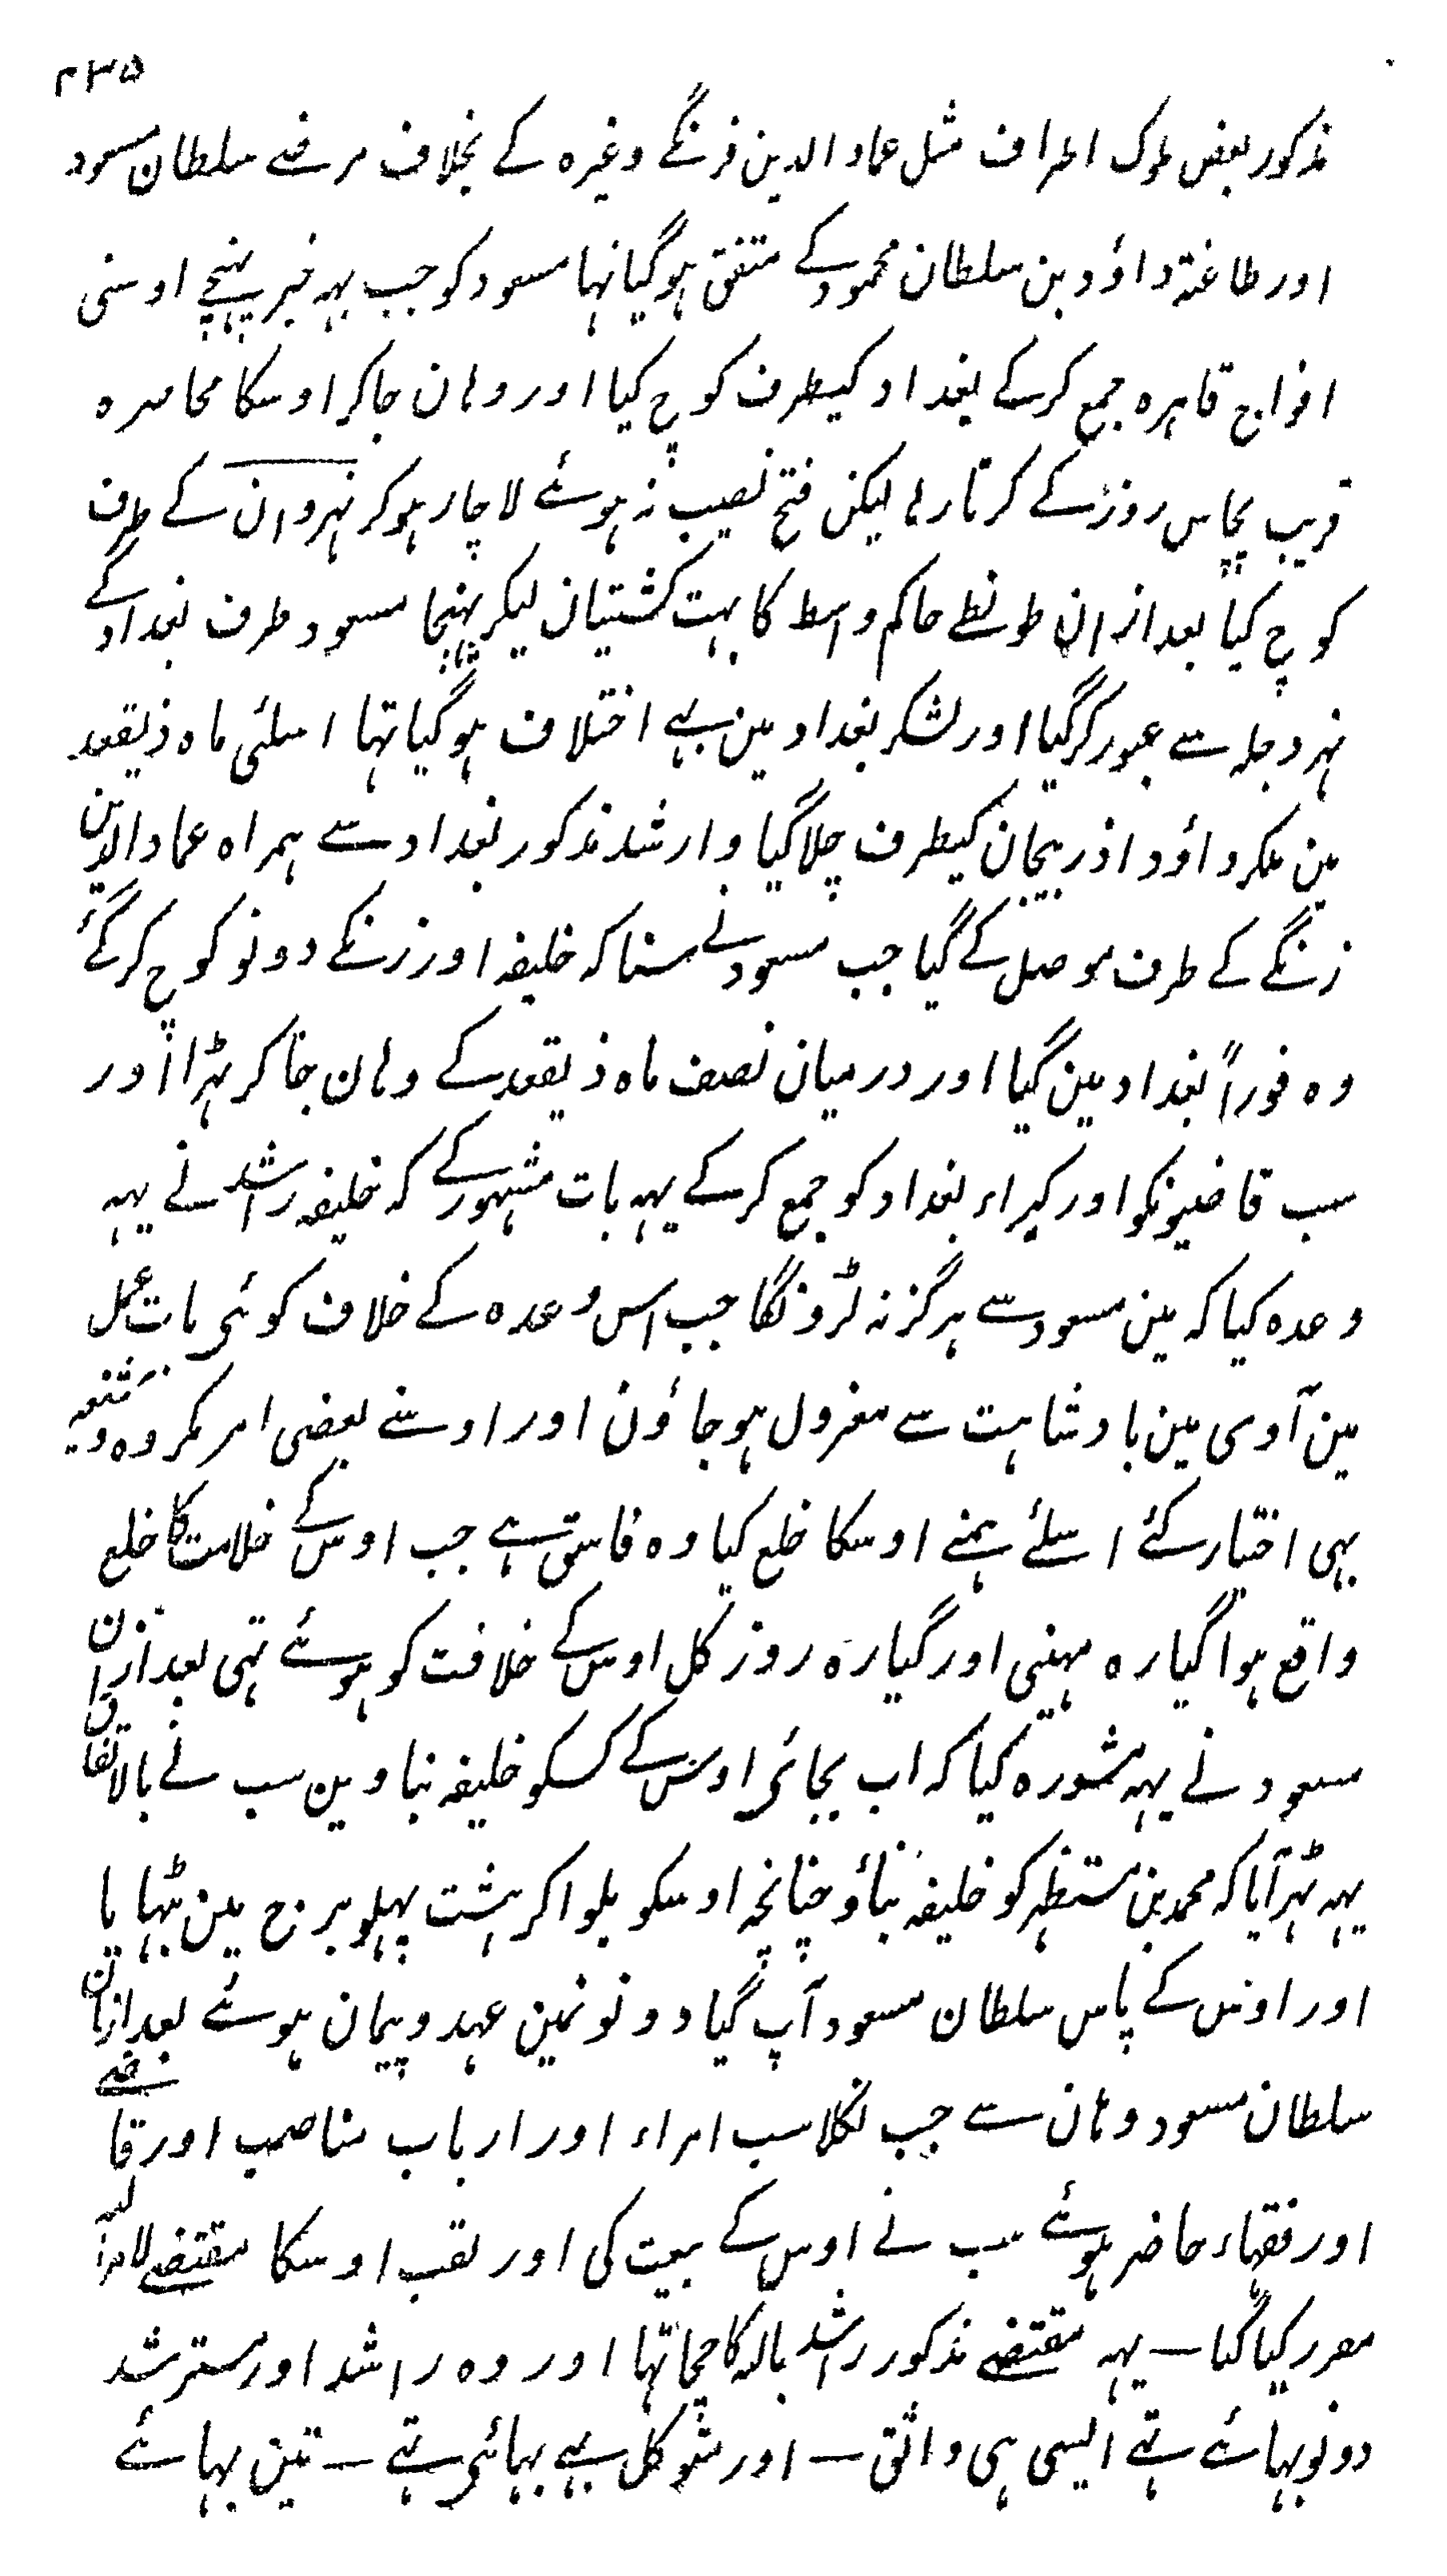 ۲۳۵
مذکور بعض ملوک اطراف مثل عماد الدین زنگے وغیرہ کے بخلاف مرضے سلطان مسعود
اور طاعتہ داؤد بن سلطان محمود کے متفق ہوگیا تہا مسعود کو جب یہہ خبر پہنچے اوسنی
افواج قاہرہ جمع کرکے بغداد کیطرف کوچ کیا اور وہان جاکر اوسکا محاصرہ
قریب پچاس روز کے کرتا رہا لیکن فتح نصیب نہ ہوئے لاچار ہوکر نہروان کے طرف
کوچ کیا بعد ازان طرنطے حاکم واسط کا بہت کشتیان لیکر پہنچا مسعود طرف بغداد کے
نہر دجلہ سے عبور کرگیا اور لشکر بغداد مین بہے اختلاف ہوگیا تہا اسلئی ماہ ذیقعد
مین ملک داؤد اذربیجان کیطرف چلا گیا و ارشد مذکور بغداد سے ہمراہ عماد الدین
زنگے کے طرف موصل کے گیا جب مسعود نے سنا کہ خلیفہ اور زنگے دونو کوچ کرگئے
وہ فوراً بغداد مین گیا اور درمیان نصف ماہ ذیقعد کے وہان جاکر ٹہرا اور
سب قاضیونکو اور کبراء بغداد کو جمع کرکے یہہ بات مشہور کے کہ خلیفہ راشد نے یہہ
وعدہ کیا کہ مین مسعود سے ہرگز نہ لڑونگا جب اس وعدہ کے خلاف کوئی بات عمل
مین آوی مین بادشاہت سے معزول ہوجاؤن اور اوسنے بعضی امر مکروہ و
بہی اختیار کئے اسلئے ہمنے اوسکا خلع کیا وہ فاسق ہے جب اوس کے خلافت کا خلع
واقع ہوا گیارہ مہینی اور گیارہ روز کل اوس کے خلافت کو ہوئے تہی بعد ازان
مسعود نے یہہ مشورہ کیا کہ اب بجائی اوس کے کسکو خلیفہ بناوین سب نے بالاتفاق
یہہ ٹہرآیا کہ محمد بن مستظہر کو خلیفہ بناؤ چنانچہ اوسکو بلواکر ہشت پہلو برج مین بٹہایا
اور اوس کے پاس سلطان مسعود آپ گیا دونونمین عہد و پیمان ہوئے بعد ازان
سلطان مسعود وہان سے جب نکلا سب امراء اور ارباب مناصب اور قاضے
اور فقہاء حاضر ہوئے سب نے اوس کے بیعت کی اور لقب اوسکا مقتضے لامر اللہ
مقرر کیا گیا ـــ یہہ مقتضے مذکور راشد باللہ کا چچا تہا اور وہ راشد اور مسترشد
دونو بہائے تہے ایسی ہی واثق ـــ اور متوکل بہے بہائی تہے ـــ تین بہائے